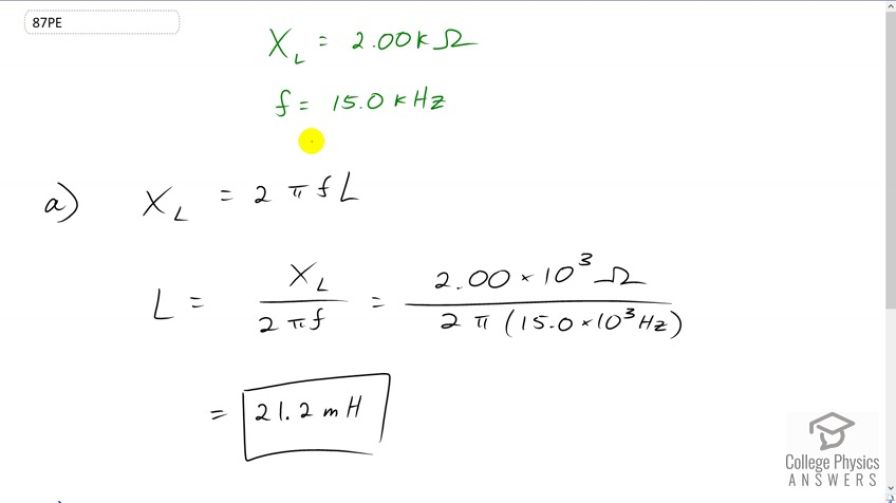 87PE
X_L = 2.00 kΩ
f = 15.0 kHz
a) X_L = 2 π f L
L = X_L / 2 π f = 2.00 × 10³ Ω / 2 π (15.0 × 10³ Hz)
= 21.2 mH
College Physics
ANSWERS